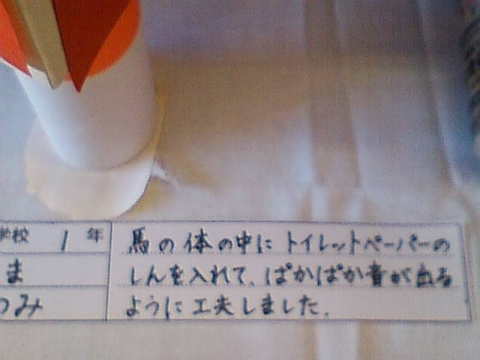 学校 1 年
ま
つみ
馬の体の中にトイレットペーパーの
しんを入れて、ぱかぱか音が出る
ように工夫しました。